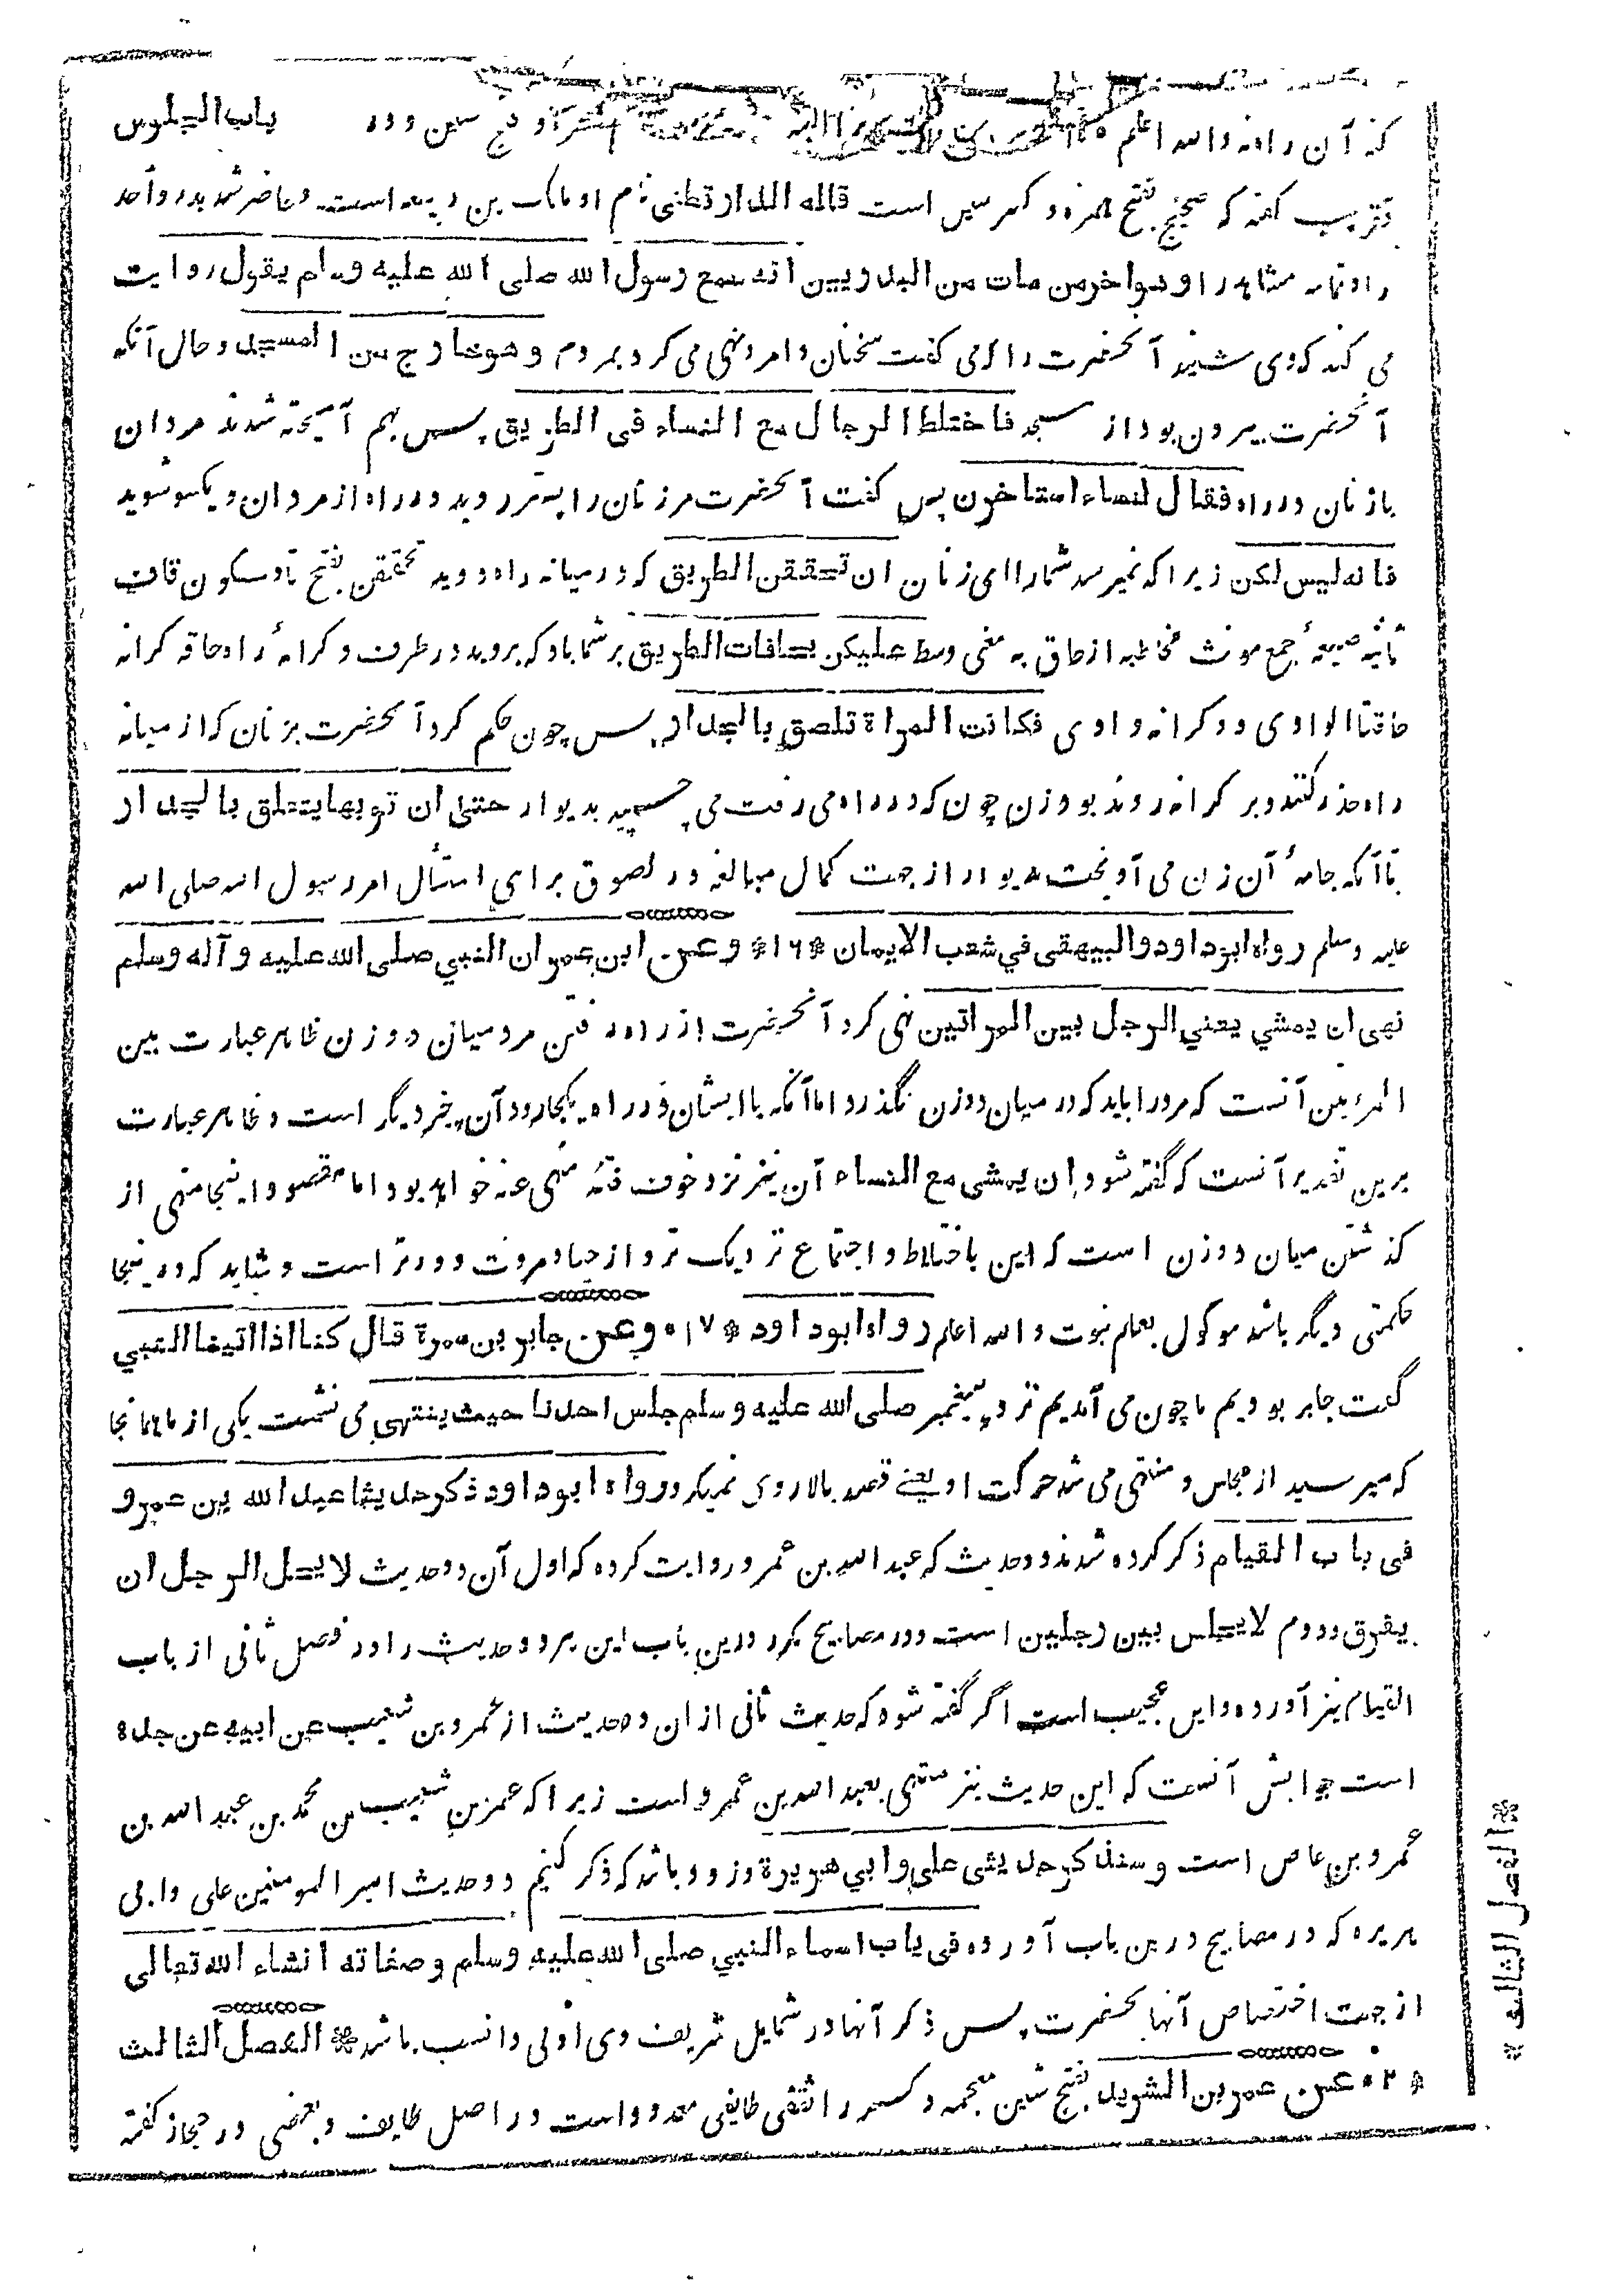 باب الجلوس
که آن راه و الله اعلم
تقریب گفته که صحیح بفتح همزه و کسر سین است قاله الدارقطنی نام او مالک بن ربیعه است و حاضر شد بدر و احد
را و تمامه مشاهد را و هو اخر من مات من البدریین انه سمع رسول الله صلی الله علیه و سلم یقول روایت
می کند که وی شنید آنحضرت را که می گفت سخنان و امر و نهی می کرد بمردم و هو خارج من المسجد و حال آنکه
آنحضرت بیرون بود از مسجد فاختلط الرجال مع النساء فی الطریق پس بهم آمیخته شدند مردان
با زنان در راه فقال للنساء استاخرن پس گفت آنحضرت مر زنان را پستر روید در راه از مردان و یکسو شوید
فانه لیس لکن زیرا که نمیرسد شما را ای زنان ان تحققن الطریق که در میانه راه روید تحققن بفتح تا و سکون قاف
ثانیه صیغهٔ جمع مونث مخاطبه از حاق به معنی وسط علیکن بحافات الطریق بر شما باد که بروید در طرف و کرانهٔ راه حافه کرانه
حافتا الوادی دو کرانه وادی فکانت المراة تلصق بالجدار پس چون حکم کرد آنحضرت بزنان که از میانه
راه حذر کنند و بر کرانه روند بود زن چون که در راه می رفت می چسپید بدیوار حتی ان ثوبها یتعلق بالجدار
تا آنکه جامهٔ آن زن می آویخت بدیوار از جهت کمال مبالغه در لصوق برای امتثال امر رسول الله صلی الله
علیه و سلم رواه ابو داود و البیهقی في شعب الایمان * ۱۶ * و عن ابن عمر ان النبي صلی الله علیه و آله و سلم
نهی ان یمشي یعني الرجل بین المراتین نهی کرد آنحضرت از راه رفتن مرد میان دو زن ظاهر عبارت بین
المرتین آنست که مرد را باید که در میان دو زن نگذرد اما آنکه با ایشان در راه یکجا رود آن چیز دیگر است و ظاهر عبارت
برین تقدیر آنست که گفته شود ان یمشی مع النساء آن نیز نزد خوف فتنه منهی عنه خواهد بود اما مقصود اینجا نهی از
گذشتن میان دو زن است که این باختلاط و اجتماع نزدیک تر و از حیا و مروت دورتر است و شاید که در ینجا
حکمتی دیگر باشد موکول بعلم نبوت و الله اعلم رواه ابو داود * ۱۷ * و عن جابر بن سمرة قال کنا اذا اتینا النبي
گفت جابر بودیم ما چون می آمدیم نزد پیغمبر صلی الله علیه و سلم جلس احدنا حیث ینتهي می نشست یکی از ما آنجا
که میرسید از مجلس و منتهی می شد حرکت او یعنے قصد بالاروی نمیکرد رواه ابو داود ذکر حدیثا عبد الله بن عمرو
فی باب القیام ذکر کرده شدند دو حدیث که عبد الله بن عمرو روایت کرده که اول آن دو حدیث لا یحل الرجل ان
یفرق و دوم لا یجلس بین رجلین است و در مصابیح درین باب این هر دو حدیث را در فصل ثانی از باب
القیام نیز آورده و این عجیب است اگر گفته شود که حدیث ثانی از ان دو حدیث از عمرو بن شعیب عن ابیه عن جده
است جوابش آنست که این حدیث نیز منتهی بعبد الله بن عمرو است زیرا که عمرو بن شعیب بن محمد بن عبد الله بن
عمرو بن عاص است و سنذکر حدیثی علی و ابي هریرة و زود باشد که ذکر کنیم دو حدیث امیر المومنین علی و ابی
هریره که در مصابیح درین باب آورده فی باب اسماء النبي صلی الله علیه و سلم و صفاته انشاء الله تعالی
از جهت اختصاص آنها بحضرت پس ذکر آنها در شمایل شریف وی اولی و انسب باشد * الفصل الثالث
عن عمرو بن الشرید بفتح شین معجمه و کسر را ثقفی طایفی معدود است در اصل طایف و بعضی در حجاز گفته
* الفصل الثالث *